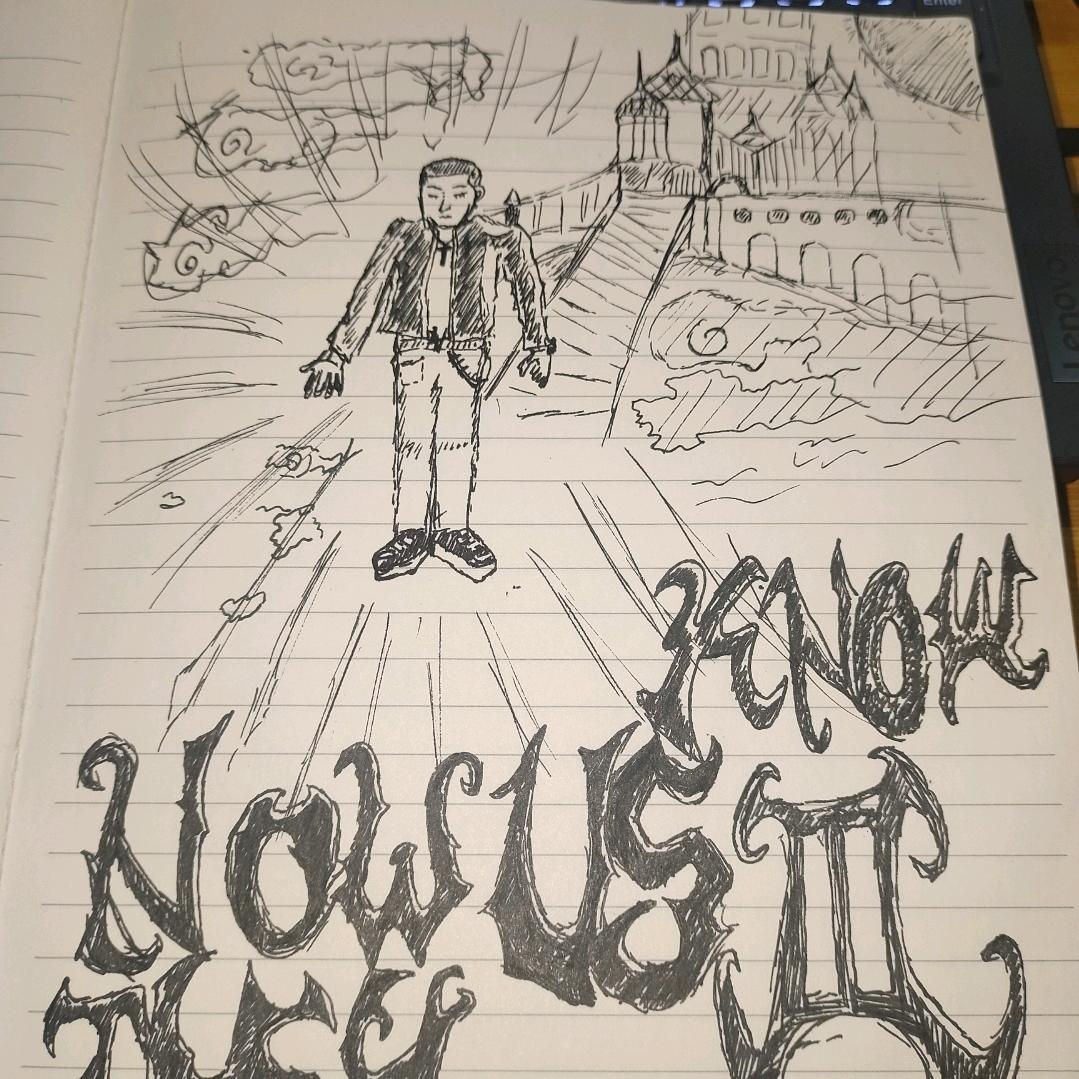 Enter
Lenovo
KNOW
NOW US